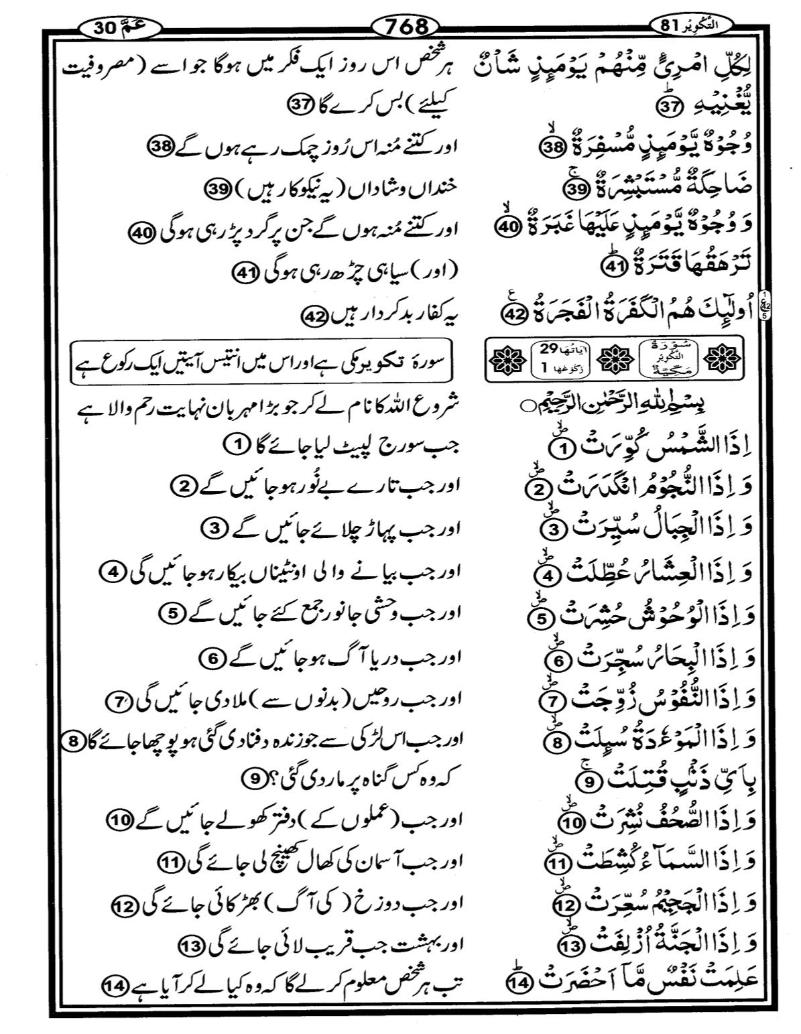 التَّكْوِيْر 81
768
عَمَّ 30
لِكُلِّ امْرِئٍ مِّنْهُمْ يَوْمَئِذٍ شَاْنٌ ہر شخص اس روز ایک فکر میں ہوگا جو اسے (مصروفیت
يُّغْنِيْهِ ﴿37﴾ کیلئے) بس کرے گا ﴿37﴾
وُجُوْهٌ يَّوْمَئِذٍ مُّسْفِرَةٌ ﴿38﴾ اور کتنے مُنہ اس رُوز چمک رہے ہوں گے ﴿38﴾
ضَاحِكَةٌ مُّسْتَبْشِرَةٌ ﴿39﴾ خنداں و شاداں (یہ نیکوکار ہیں) ﴿39﴾
وَ وُجُوْهٌ يَّوْمَئِذٍ عَلَيْهَا غَبَرَةٌ ﴿40﴾ اور کتنے مُنہ ہوں گے جن پر گرد پڑ رہی ہوگی ﴿40﴾
تَرْهَقُهَا قَتَرَةٌ ﴿41﴾ (اور) سیاہی چڑھ رہی ہوگی ﴿41﴾
اُولٰٓئِكَ هُمُ الْكَفَرَةُ الْفَجَرَةُ ﴿42﴾ یہ کفار بدکردار ہیں ﴿42﴾
سُوْرَةُ التَّكْوِيْرِ مَكِّيَّةٌ اٰيَاتُهَا 29 رُكُوْعُهَا 1 سورۂ تکویر مکی ہے اور اس میں انتیس آیتیں ایک رکوع ہے
بِسْمِ اللّٰهِ الرَّحْمٰنِ الرَّحِيْمِ شروع اللہ کا نام لے کر جو بڑا مہربان نہایت رحم والا ہے
اِذَا الشَّمْسُ كُوِّرَتْ ﴿1﴾ جب سورج لپیٹ لیا جائے گا ﴿1﴾
وَ اِذَا النُّجُوْمُ انْكَدَرَتْ ﴿2﴾ اور جب تارے بے نُور ہو جائیں گے ﴿2﴾
وَ اِذَا الْجِبَالُ سُيِّرَتْ ﴿3﴾ اور جب پہاڑ چلائے جائیں گے ﴿3﴾
وَ اِذَا الْعِشَارُ عُطِّلَتْ ﴿4﴾ اور جب بیانے والی اونٹنیاں بیکار ہو جائیں گی ﴿4﴾
وَ اِذَا الْوُحُوْشُ حُشِرَتْ ﴿5﴾ اور جب وحشی جانور جمع کئے جائیں گے ﴿5﴾
وَ اِذَا الْبِحَارُ سُجِّرَتْ ﴿6﴾ اور جب دریا آگ ہو جائیں گے ﴿6﴾
وَ اِذَا النُّفُوْسُ زُوِّجَتْ ﴿7﴾ اور جب روحیں (بدنوں سے) ملا دی جائیں گی ﴿7﴾
وَ اِذَا الْمَوْءٗدَةُ سُئِلَتْ ﴿8﴾ اور جب اس لڑکی سے جو زندہ دفنا دی گئی ہو پوچھا جائے گا ﴿8﴾
بِاَيِّ ذَنْۢبٍ قُتِلَتْ ﴿9﴾ کہ وہ کس گناہ پر مار دی گئی؟ ﴿9﴾
وَ اِذَا الصُّحُفُ نُشِرَتْ ﴿10﴾ اور جب (عملوں کے) دفتر کھولے جائیں گے ﴿10﴾
وَ اِذَا السَّمَآءُ كُشِطَتْ ﴿11﴾ اور جب آسمان کی کھال کھینچ لی جائے گی ﴿11﴾
وَ اِذَا الْجَحِيْمُ سُعِّرَتْ ﴿12﴾ اور جب دوزخ (کی آگ) بھڑکائی جائے گی ﴿12﴾
وَ اِذَا الْجَنَّةُ اُزْلِفَتْ ﴿13﴾ اور بہشت جب قریب لائی جائے گی ﴿13﴾
عَلِمَتْ نَفْسٌ مَّاۤ اَحْضَرَتْ ﴿14﴾ تب ہر شخص معلوم کرلے گا کہ وہ کیا لے کر آیا ہے ﴿14﴾